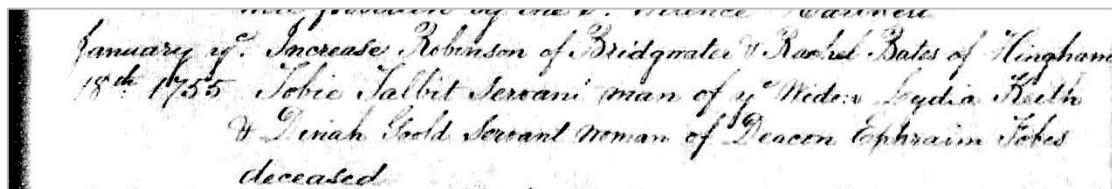 January yᵉ. Increase Robinson of Bridgwater & Rachel Bates of Hingham
18th 1755 Tobie Talbit Servant man of yᵉ Widow Lydia Keith
& Dinah Goold Servant woman of Deacon Ephraim Fobes
deceased